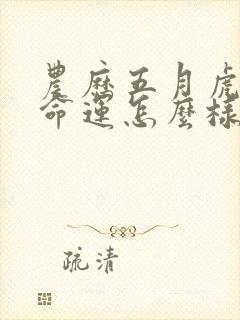 農歷五月虎
命運怎麼樣
疏清